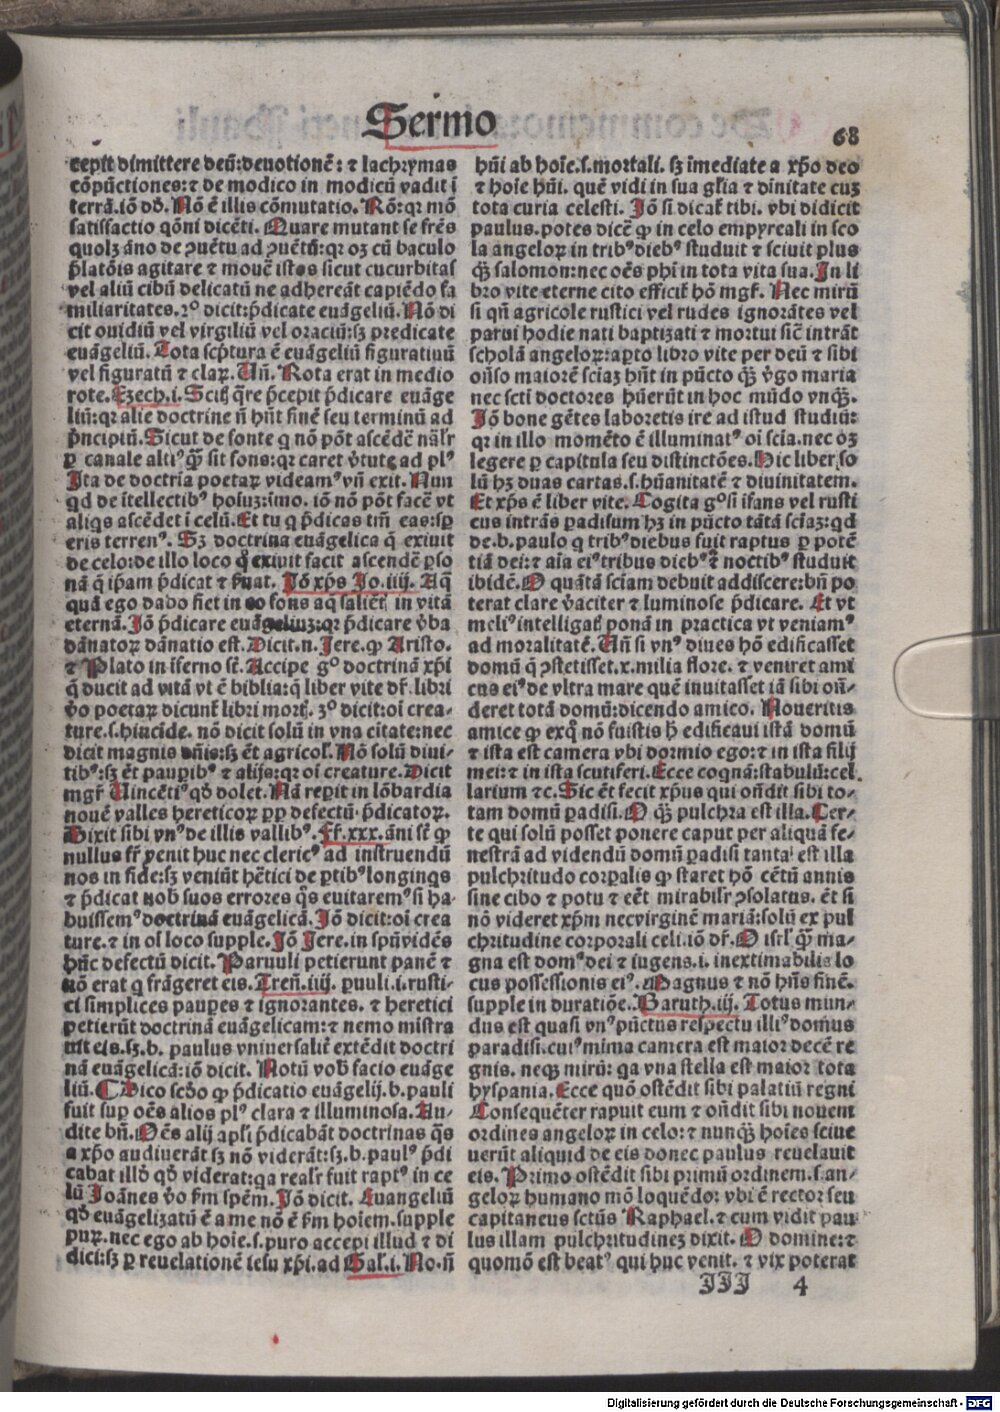 Sermo
68
cepit dimittere deū: deuotionē: ⁊ lachrymas
cōpūctiones: ⁊ de modico in modicū vadit ī
terrā. iō dō. Nō ē illis cōmutatio. Rō: qꝛ mō
satisfactio qōni dicēti. Quare mutant se frēs
quolꝫ āno de ꝯuētu ad ꝯuētū: qꝛ oꝫ cū baculo
p̄latōis agitare ⁊ mouē istos sicut cucurbitas
vel aliū cibū delicatū ne adhereāt capiēdo fa
miliaritates. 2º dicit: p̄dicate euāgeliū. Nō di
cit ouidiū vel virgiliū vel oraciū: sꝫ predicate
euāgeliū. Tota scp̄tura ē euāgeliū figuratiuū
vel figuratū ⁊ claꝝ. Uñ. Rota erat in medio
rote. Ezech. i. Scitꝭ q̄re p̄cepit p̄dicare euāge
liū: qꝛ alie doctrine ñ hñt finē seu terminū ad
p̄ncipiū. Sicut de fonte q nō pōt ascēdē nāl'r
ꝑ canale altiꝰ q̄ꝫ sit fons: qꝛ caret v̓tute ad plꝰ
Ista de doctria poetaꝝ videamꝰ vñ exit. Nun
qd de ītellectibꝰ hoīuꝫ: īmo. iō nō pōt facē vt
aliqs ascēdet ī celū. Et tu q p̄dicas tm̄ eas: sꝑ
eris terrenꝰ. Sꝫ doctrina euāgelica q̄ exiuit
de celo: de illo loco q̄ exiuit facit ascendē ꝑso
nā q̄ ip̄am p̄dicat ⁊ ẜuat. Iō xp̄s Jo. iiij. Aq̄
quā ego dabo fiet in eo fons aq̄ saliētꝭ in vitā
eternā. Iō p̄dicare euāgeliuꝫ: qꝛ p̄dicare v̓ba
dānatoꝝ dānatio est. Dicit .n. Jere. ꝙ Aristo.
⁊ Plato in īferno sē. Accipe gº doctrinā xp̄i
q̄ ducit ad vitā vt ē biblia: q̄ liber vite dr̄. libri
v̓o poetaꝝ dicunt̃ libri mortꝭ. 3º dicit: oī crea-
ture. s. hūane. nō dicit solū in vna citate: nec
dicit magnis dñis: sꝫ ēt agricol'. Nō solū diui-
tibꝰ: sꝫ ēt pauꝑibꝰ ⁊ alijs: qꝛ oī creature. Dicit
mgr̄ Uincētiꝰ qd̓ dolet. Nā reꝑit in lōbardia
nouē valles hereticoꝝ ꝓp defectū p̄dicatoꝝ.
Dixit sibi vnꝰ de illis vallibꝰ. Ff. xxx. āni sē ꝙ
nullus fr̄ venit huc nec clericꝰ ad instruendū
nos in fide: sꝫ veniūt hētici de ꝑtibꝰ longinqs
⁊ p̄dicāt nob suos errores q̄s euitaremꝰ si ha-
buissemꝰ doctrinā euāgelicā. Iō dicit: oī crea
ture. ⁊ in oī loco supple. Iō Jere. in spū vidēs
hūc defectū dicit. Paruuli petierunt panē ⁊
nō erat q frāgeret eis. Treñ. iiij. ꝑuuli. i. rusti-
ci simplices pauꝑes ⁊ ignorantes. ⁊ heretici
petierūt doctrinā euāgelicam: ⁊ nemo mistra
uit eis. sꝫ .b. paulus vniuersalit̃ extēdit doctri
nā euāgelicā: iō dicit. Notū vob̄ facio euāge
liū. ¶ Dico scd̓o ꝙ p̄dicatio euāgelij .b. pauli
fuit suꝑ oēs alios plꝰ clara ⁊ illuminosa. Au-
dite bñ. Oēs alij apl'i p̄dicabāt doctrinas q̄s
a xp̄o audiuerāt sꝫ nō viderāt: sꝫ .b. paulꝰ p̄di
cabat illd̓ qd̓ viderat: qa real'r fuit raptꝰ in ce
lū Joānes v̓o ẜm spēm. Iō dicit. Euangeliū
qd̓ euāgelizatū ē a me nō ē ẜm hoīem. supple
puꝝ. nec ego ab hoīe. s. puro accepi illud ⁊ di
dici: sꝫ ꝑ reuelationē iesu xp̄i. ad Gal'. i. No. ñ
hūi ab hoīe. s. mortali. sꝫ īmediate a xp̄o deo
⁊ hoīe hūi. quē vidi in sua gl'ia ⁊ dinitate cuꝫ
tota curia celesti. Iō si dicat̃ tibi. vbi didicit
paulus. potes dicē ꝙ in celo empyreali in sco
la angeloꝝ in tribꝰ diebꝰ studuit ⁊ sciuit plus
q̄ꝫ salomon: nec oēs ph̄i in tota vita sua. In li
bro vite eterne cito efficit̃ hō mgr̄. Nec mirū
si qñ agricole rustici vel rudes ignorātes vel
parui hodie nati baptizati ⁊ mortui sic̄ intrāt
scholā angeloꝝ: aꝑto libro vite per deū ⁊ sibi
oñso maiorē sciaꝫ hñt in pūcto q̄ꝫ v̓go maria
nec scti doctores hūerūt in hoc mūdo vnq̄ꝫ.
Iō bone gētes laboretis ire ad istud studiū:
qꝛ in illo momēto ē illuminatꝰ oī scīa. nec oꝫ
legere ꝑ capitula seu distinctōes. Hic liber so
lū hꝫ duas cartas. s. hūanitatē ⁊ diuinitatem.
Et xp̄s ē liber vite. Cogita gº si īfans vel rusti
cus intrās ꝑadisum hꝫ in pūcto tātā sciaꝫ: qd
de .b. paulo q tribꝰ diebus fuit raptus ꝑ potē
tiā dei: ⁊ aīa eiꝰ tribus diebꝰ ⁊ noctibꝰ studuit
ibidē. O quātā sciam debuit addiscere: bñ po
terat clare v̓aciter ⁊ luminose p̄dicare. Et vt
meliꝰ intelligatꝭ ponā in practica vt veniamꝰ
ad moralitatē. Uñ si vnꝰ diues hō edificasset
domū q̄ ꝯstetisset .x. milia flore. ⁊ veniret ami
cus eiꝰ de vltra mare quē inuitasset iā sibi oñ-
deret totā domū: dicendo amico. Noueritis
amice ꝙ exq̄ nō fuistis h̄ edificaui istā domū
⁊ ista est camera vbi dormio ego: ⁊ in ista filij
mei: ⁊ in ista scutiferi. Ecce coqnā: stabulū: cel
larium ⁊c. Sic ēt fecit xp̄us qui oñdit sibi to-
tam domū ꝑadisi. O q̄ꝫ pulchra est illa. Cer-
te qui solū posset ponere caput per aliquā fe-
nestrā ad videndū domū ꝑadisi tanta est illa
pulchritudo corꝑalis ꝙ staret hō cētū annis
sine cibo ⁊ potu ⁊ eēt mirabil'r ꝯsolatus. ēt si
nō videret xp̄m nec virginē mariā: solū ex pul
chritudine corporali celi. iō dr̄. O isrl' q̄ꝫ ma-
gna est domꝰ dei ⁊ iugens. i. inextimabilis lo
cus possessionis eiꝰ. Magnus ⁊ nō hñs finē.
supple in duratiōe. Baruth. iij. Totus mun-
dus est quasi vnꝰ pūctus respectu illiꝰ domus
paradisi. cuiꝰ mīma camera est maior decē re
gnis. neqꝫ mirū: qa vna stella est maior tota
hyspania. Ecce quō ostēdit sibi palatiū regni
Consequēter rapuit eum ⁊ oñdit sibi nouem
ordines angeloꝝ in celo: ⁊ nunq̄ꝫ hoīes sciue
uerūt aliquid de eis donec paulus reuelauit
eis. Primo ostēdit sibi primū ordinem. s. an-
geloꝝ humano mō loquēdo: vbi ē rector seu
capitaneus sctūs Raphael. ⁊ cum vidit pau
lus illam pulchritudineꝫ dixit. O domine: ⁊
quomō est beatꝰ qui huc venit. ⁊ vix poterat
III 4
Digitalisierung gefördert durch die Deutsche Forschungsgemeinschaft - DFG